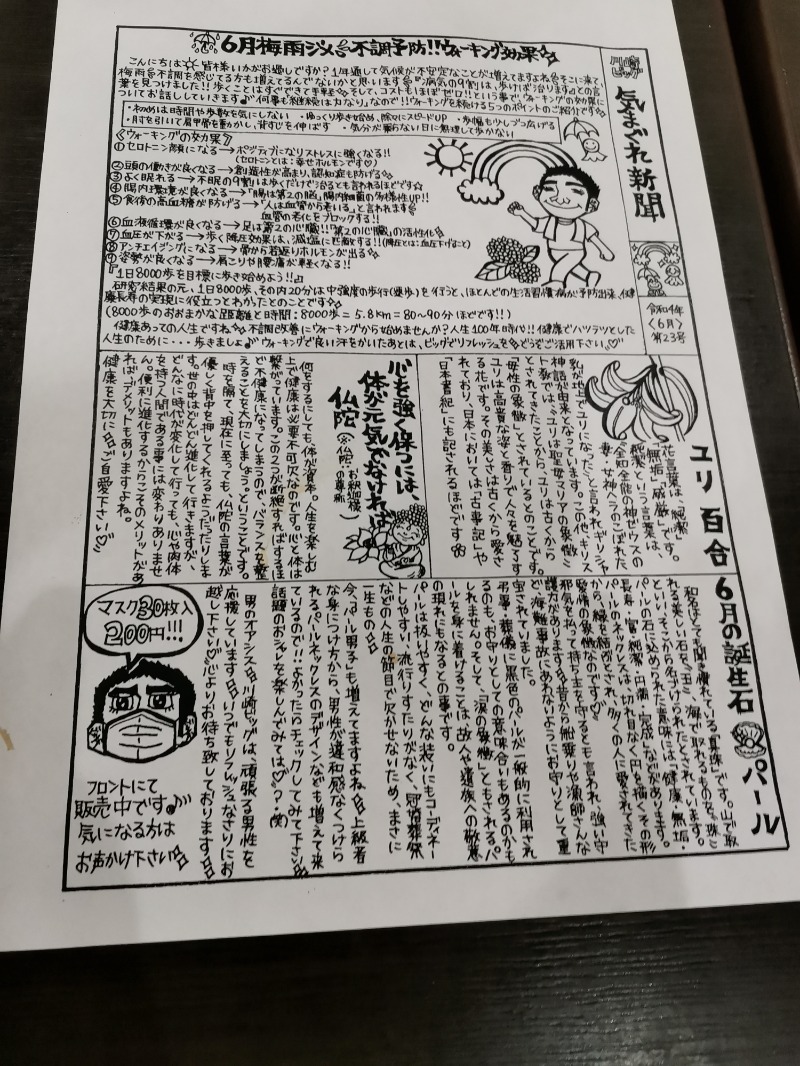 6月梅雨ジメジメ不調予防!!ウォーキング効果
川崎ビッグ
気まぐれ新聞
令和4年
〈6月〉
第23号
こんにちは 皆様いかがお過しですか?1年通して気候が不安定なことが増えてますよね そこに来て、
梅雨 不調を感じてる方も増えてるんでないかと思います 『病気の9割は、歩けば治ります』との言
葉を見つけました!!歩くことはすぐできて手軽 そして、コストもほぼゼロ!!という事で、ウォーキングの効果に
ついてお話ししていきます 何事も継続は力なり、なので!!ウォーキングを続ける5つのポイントのご紹介です
・初めは時間や歩数を気にしない ・ゆっくり歩き始め、徐々にスピードUP ・歩幅も少しづつ広げる
・肘を引いて肩甲骨を動かし、背すじを伸ばす ・気分が乗らない日に無理して歩かない
《ウォーキングの効果》
①セロトニン顔になる→ポジティブになりストレスに強くなる!!
(セロトニンとは:幸せホルモンです♡)
②頭の働きが良くなる→創造性が高まり、認知症も防げる
③よく眠れる→不眠の9割は歩くだけで治るとも言われるほどです
④腸内環境が良くなる→「腸は第2の脳」腸内細菌の多様性UP!!
⑤食後の高血糖が防げる→「人は血管から老いる」と言われます
血管の老化をブロックする!!
⑥血液循環が良くなる→足は第2の心臓!!「第2の心臓」の活性化
⑦血圧が下がる→歩く降圧効果は、減塩に匹敵する!!(降圧とは:血圧下げること)
⑧アンチエイジングになる→骨から若返りホルモンが出る
⑨姿勢が良くなる→肩こりや腰痛が軽くなる!!
『1日8000歩を目標に歩き始めよう!!』
研究結果の元、1日8000歩、その内20分は中強度の歩行(速歩)を行うと、ほとんどの生活習慣病が予防出来、健
康長寿の実現に役立つとわかたとのことです
(8000歩のおおまかな距離と時間:8000歩=5.8km=80〜90分ほどです!!)
健康あっての人生ですね 不調改善にウォーキングから始めませんか?人生100年時代!!健康でハツラツとした
人生のために・・・歩きましょ ウォーキングで良い汗をかいたあとは、ビッグでリフレッシュをどうぞご活用下さい
ユリ 百合
花言葉は、「純潔」
「無垢」「威厳」です。
純潔という言葉は、
全知全能の神ゼウスの
妻・女神ヘラのこぼれた
乳が地上でユリになった、と言われギリシャ
神話が由来となっています。このためキリス
ト教では、“ユリは聖母マリアの象徴”
とされてきたことから、ユリは古くから
「母性の象徴」とされているとのことです。
ユリは高貴な姿と香りで人々を魅了す
る花です。その美しさは古くから愛さ
れており、日本においては「古事記」や
「日本書紀」にも記されるほどです
心を強く保つには、
体が元気でなければ
仏陀(※仏陀:お釈迦様の尊称)
何をするにしても体が資本。人生を楽しむ
上で健康は必要不可欠なのです。心と体は
繋がっています。この2つが断絶すればするほ
ど不健康になってしまうので、バランスを整
えることを大切にしましょう。ということです。
時を隔て、現在に至っても、仏陀の言葉が
優しく背中を押してくれるようだったりしま
す。世の中はどんどん進化して行きますが、
どんなに時代が変化して行っても、心や肉体
を持つ人間である事には変わりありませ
ん。便利に進化するからこそのメリットがあ
れば、デメリットもありますよね。
健康を大切に ご自愛下さい
6月の誕生石 パール
和名はとても聞き慣れている「真珠」です。山で取
れる美しい石を「玉」、海で取れるものを「珠」
といい、そこから名づけられたとされています。
パールの石に込められた意味には、「健康・無垢・
長寿・富・純潔・円満・完成」などがあります。
パールのネックレスは、切れ目なく円を描くその形
から、「縁を結ぶ」とされ、多くの人に愛されてきた
愛情の象徴なのです
邪気を払って持ち主を守るとも言われ、強い守
護力があります 昔から船乗りや漁師さんな
ど、海難事故にあわないようにお守りとして重
宝されていました。
弔事・葬儀に黒色のパールが一般的に利用され
るのも、お守りとしての意味合いもあるのかも
しれません。そして、「涙の象徴」ともされるパ
ールを身に着けることは、故人や遺族への敬意
の現れにもなるとの事です。
パールは扱いやすく、どんな装いにもコーディネー
トしやすい、流行りすたりがなく、冠婚葬祭
などの人生の節目で欠かせないため、まさに
一生もの
今、「パール男子」も増えてますよね 上級者
な身につけ方から、男性が違和感なくつけら
れるパールネックレスのデザインなども増えて来
ているので!!よかったらチェックしてみて下さい
話題のおシャレを楽しんでみては♡?(笑)
男のオアシス 川崎ビッグは、頑張る男性を
応援しています いつでもリフレッシュなさりにお
越し下さい 心よりお待ち致しております
マスク30枚入
200円!!!
フロントにて
販売中です
気になる方は
お声かけ下さい